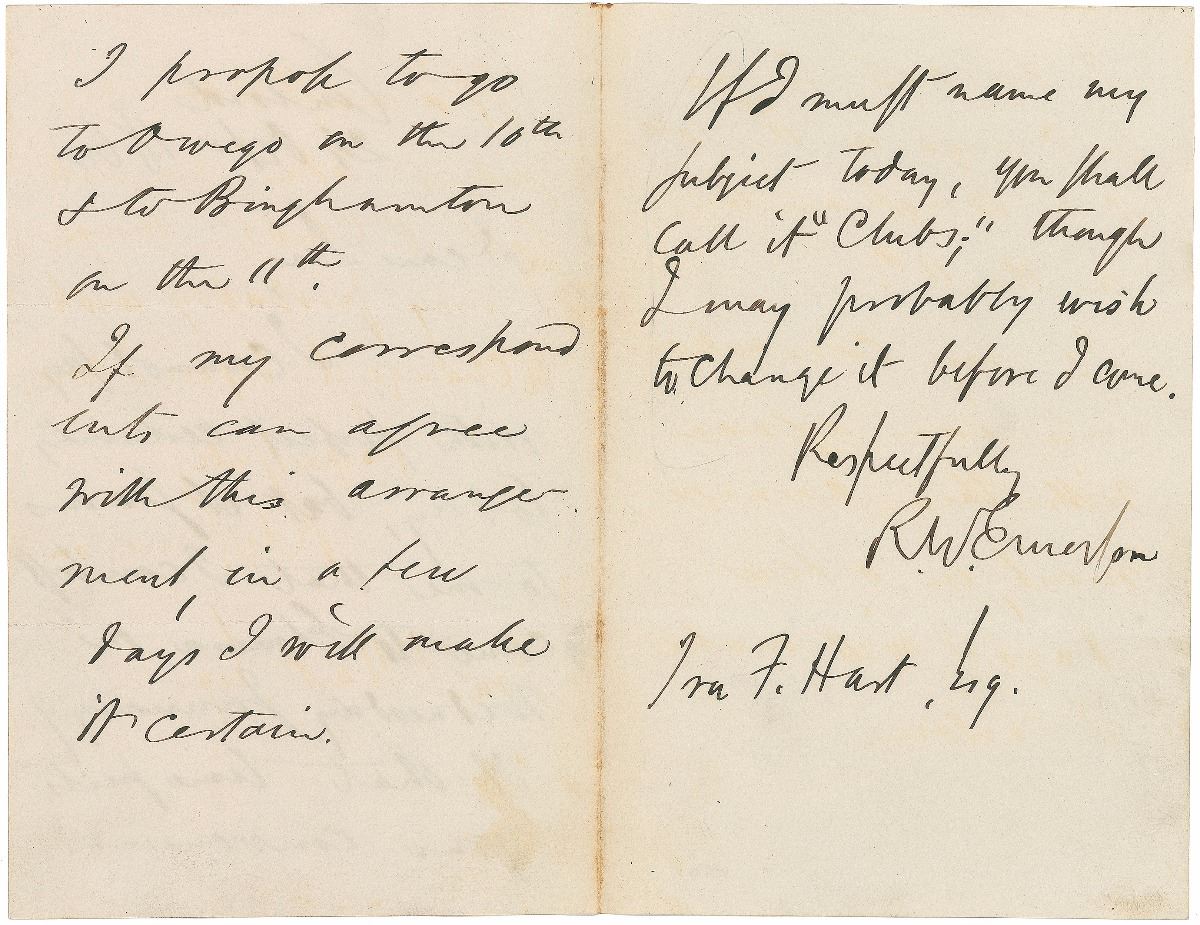 I propose to go
to Owego on the 10th
& to Binghamton
on the 11th.
If my correspond
ents can agree
with this arrange-
ment, in a few
days I will make
it certain.
If I must name my
subject today, you shall
call it "Clubs;" though
I may probably wish
to change it before I come.
Respectfully
R. W. Emerson
Ira F. Hart, Esq.